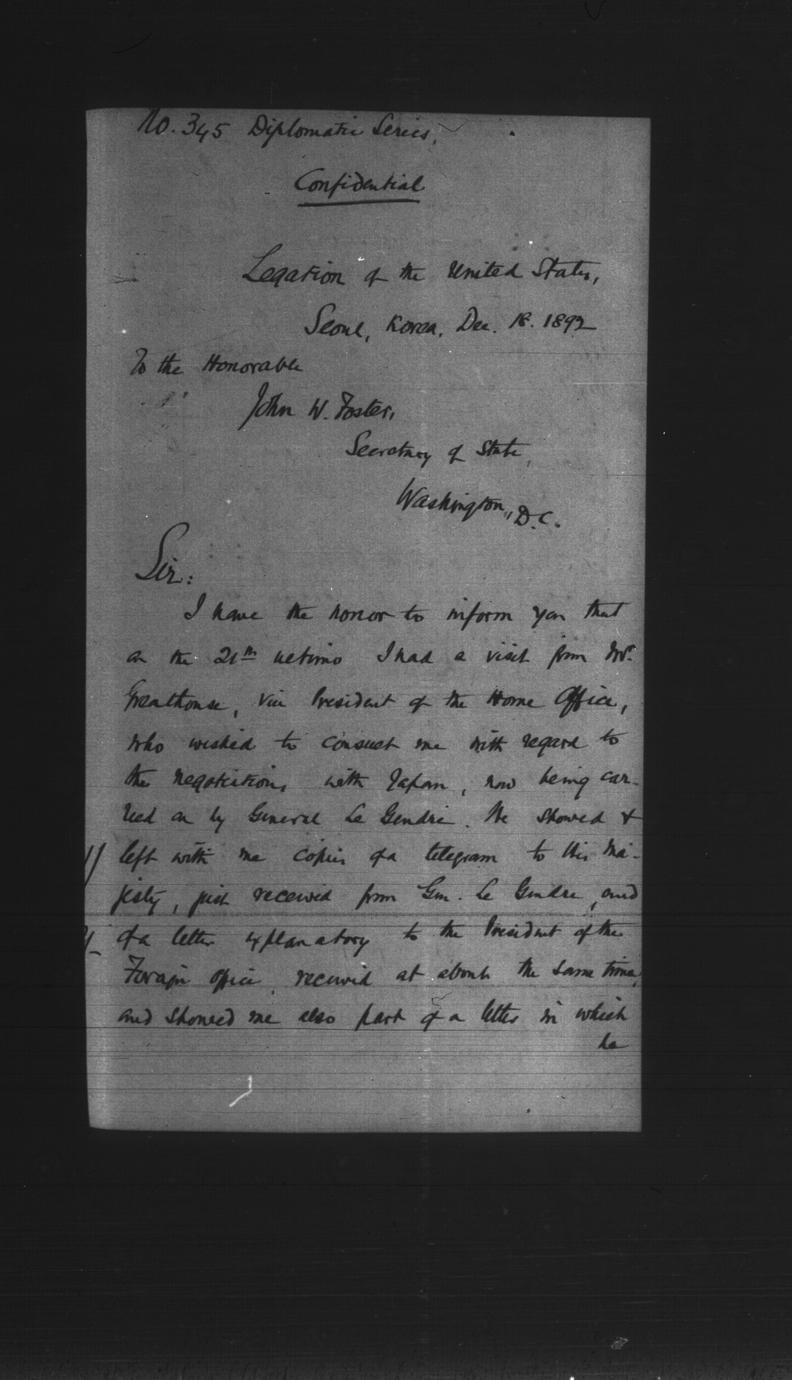 No. 345 Diplomatic Series.
Confidential
Legation of the United States,
Seoul, Korea, Dec. 18. 1892
To the Honorable
John W. Foster,
Secretary of State,
Washington, D.C.
Sir:
I have the honor to inform you that
on the 21th ultimo I had a visit from Mr.
Greathouse, Vice President of the Home Office,
who wished to consult me with regard to
the negotiations with Japan, now being car-
ried on by General Le Gendre. He showed &
1/ left with me copies of a telegram to His Ma-
jesty, just received from Gen. Le Gendre, and
of a letter explanatory to the President of the
Foreign Office, received at about the same time,
and showed me also part of a letter in which
he